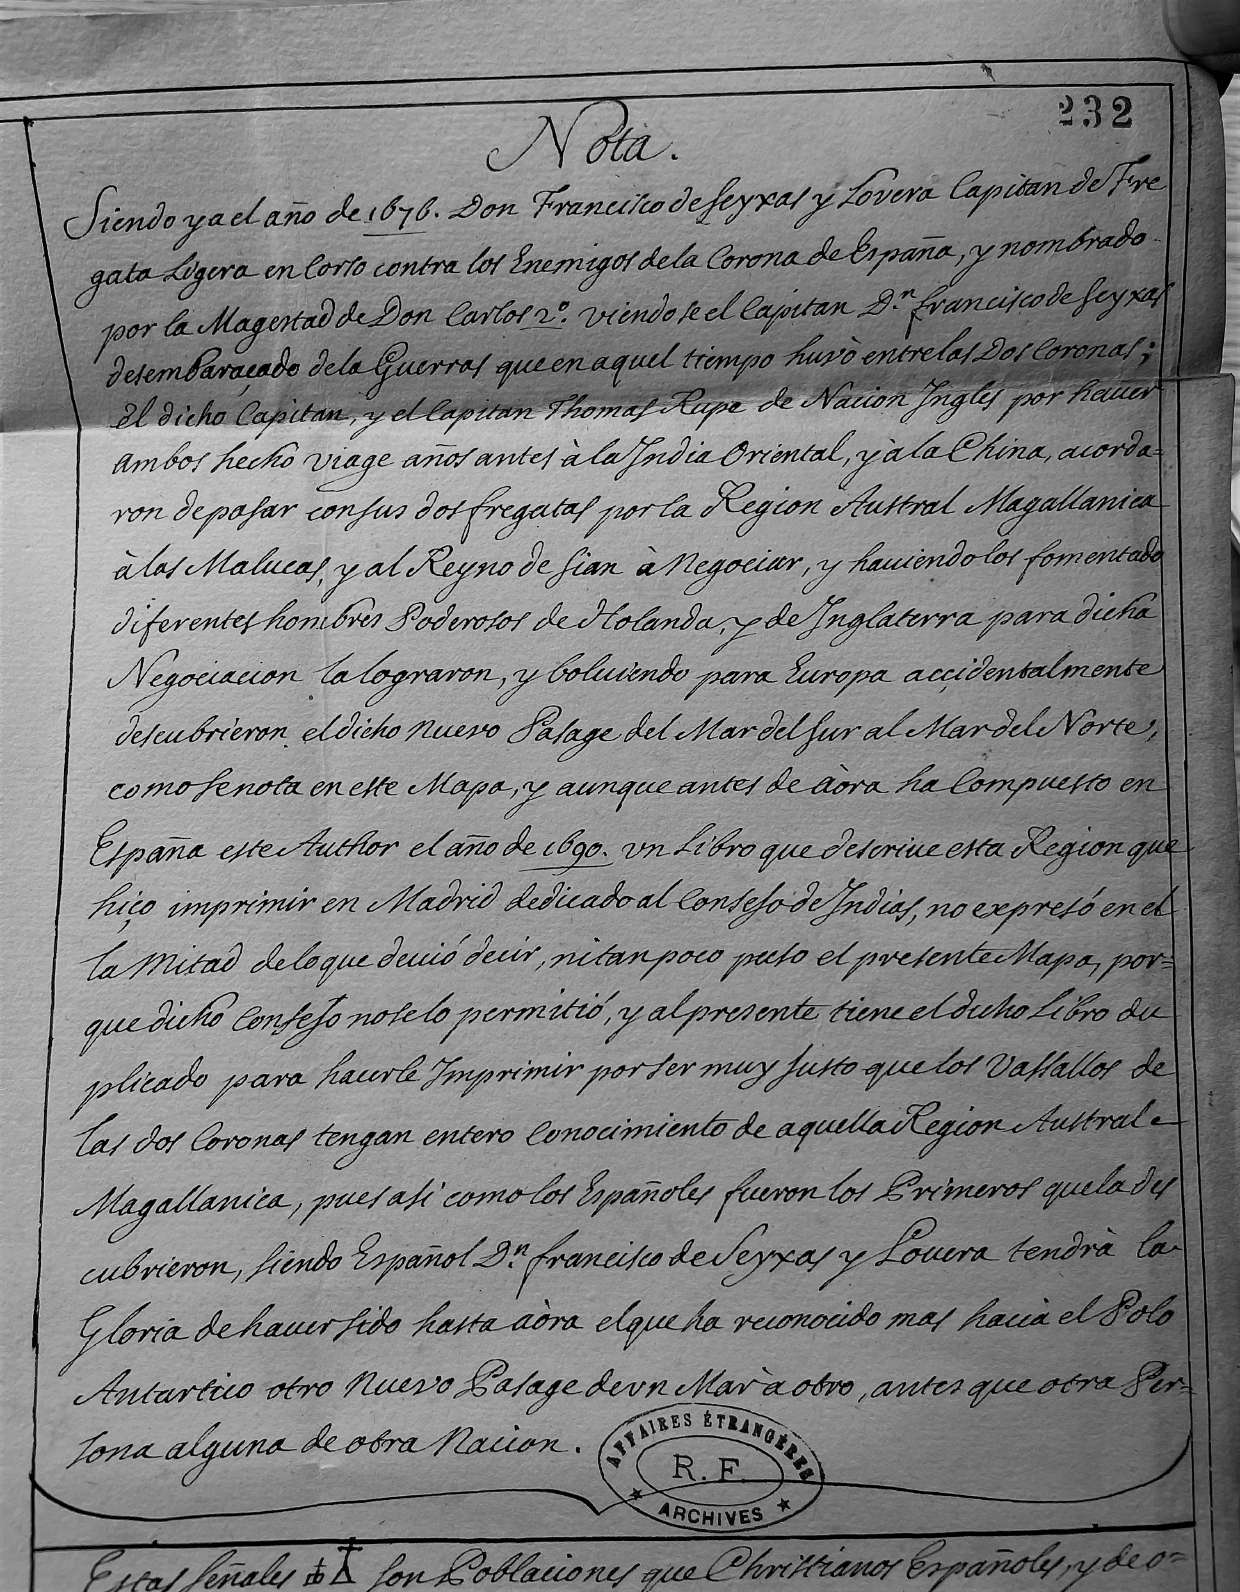 232
Nota.
Siendo ya el año de 1676. Don Francisco de Seyxas y Lovera Capitan de Fre
gata Ligera en Corso contra los Enemigos de la Corona de España, y nombrado
por la Magestad de Don Carlos 2º. viendose el Capitan Dn. francisco de Seyxas
desembaraçado de la Guerras que en aquel tiempo huvò entre las Dos Coronas;
el dicho Capitan, y el Capitan Thomas Rupe de Nacion Ingles por hauer
ambos hecho viage años antes à la India Oriental, y à la China, acorda=
ron de pasar con sus dos fregatas por la Region Austral Magallanica
à las Malucas, y al Reyno de Sian à Negociar, y hauiendolos fomentado
diferentes hombres Poderosos de Holanda, y de Inglaterra para dicha
Negociacion la lograron, y bolviendo para Europa acçidentalmente
descubrieron el dicho nuevo Pasage del Mar del Sur al Mar del Norte,
como se nota en este Mapa, y aunque antes de aòra ha Compuesto en
España este Author el año de 1690. vn Libro que descriue esta Region que
hiço imprimir en Madrid dedicado al Consejo de Indias, no expresó en el
la Mitad de lo que deuió decir, ni tan poco puso el presente Mapa, por=
que dicho Consejo no se lo permitió, y al presente tiene el dicho Libro du
plicado para hacerle Imprimir por ser muy Justo que los Vassallos de
las dos Coronas tengan entero Conocimiento de aquella Region Austral
Magallanica, pues asi como los Españoles fueron los Primeros que la des
cubrieron, siendo Español Dn. francisco de Seyxas y Louera tendrà la
Gloria de hauer sido hasta aòra el que ha reconocido mas hacia el Polo
Antartico otro Nuevo Pasage de vn Mar à otro, antes que otra Per=
sona alguna de otra Nacion.
AFFAIRES ÉTRANGÈRES
R. F.
ARCHIVES
Estas señales son Poblaciones que Christianos Españoles, y de o=